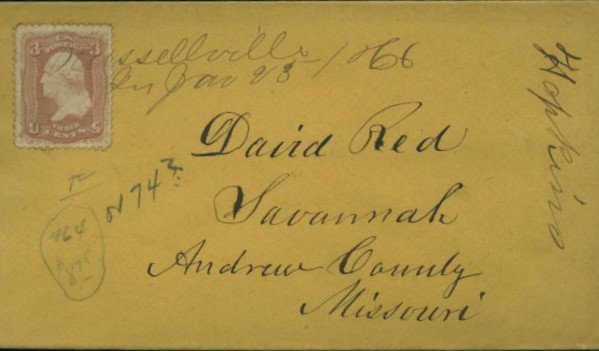 3 U.S. POSTAGE 3
THREE
U CENTS S
Russellville
Jan 23 /66
David Red
Savannah
Andrew County
Missouri
Hopkins
N 74 3